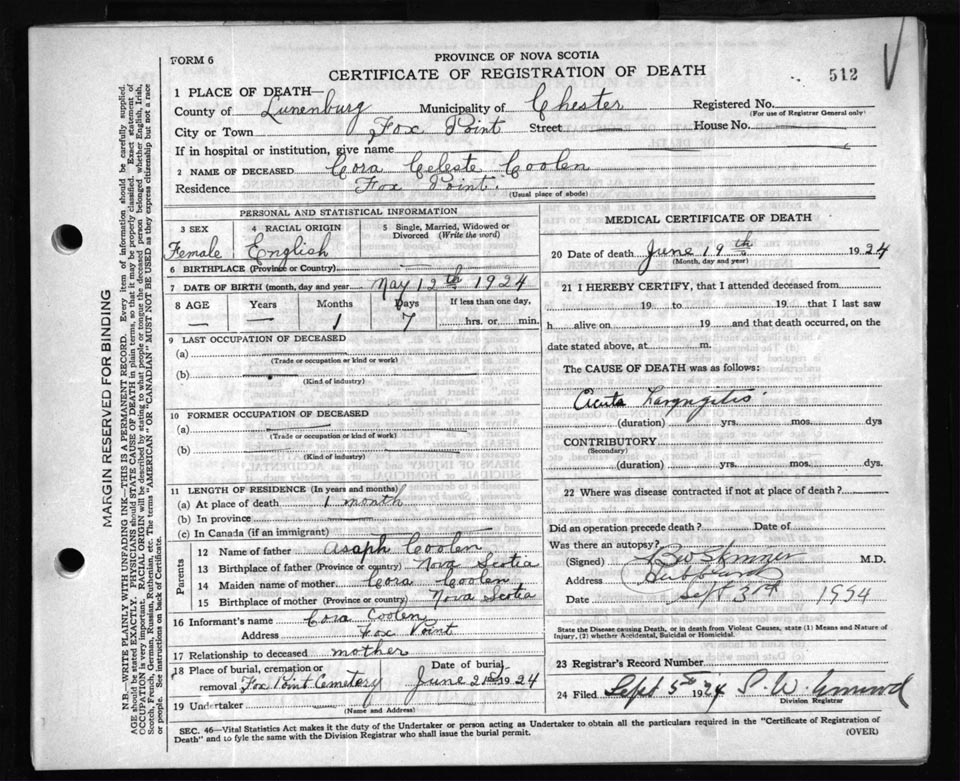 FORM 6
PROVINCE OF NOVA SCOTIA
CERTIFICATE OF REGISTRATION OF DEATH
512
1 PLACE OF DEATH—
County of Lunenburg Municipality of Chester Registered No.
(For use of Registrar General only)
City or Town Fox Point Street — House No. —
If in hospital or institution, give name
2 NAME OF DECEASED Cora Celeste Coolen
Residence Fox Point.
(Usual place of abode)
PERSONAL AND STATISTICAL INFORMATION
3 SEX 4 RACIAL ORIGIN 5 Single, Married, Widowed or Divorced (Write the word)
Female English
6 BIRTHPLACE (Province or Country) —
7 DATE OF BIRTH (month, day and year) May 12th 1924
8 AGE Years Months Days If less than one day,
— — 1 7 hrs. or min.
9 LAST OCCUPATION OF DECEASED
(a)
(Trade or occupation or kind or work)
(b)
(Kind of industry)
10 FORMER OCCUPATION OF DECEASED
(a)
(Trade or occupation or kind of work)
(b)
(Kind of industry)
11 LENGTH OF RESIDENCE (In years and months)
(a) At place of death 1 month
(b) In province
(c) In Canada (if an immigrant)
Parents
12 Name of father Asaph Coolen
13 Birthplace of father (Province or country) Nova Scotia
14 Maiden name of mother Cora Coolen
15 Birthplace of mother (Province or country) Nova Scotia
16 Informant's name Cora Coolen
Address Fox Point
17 Relationship to deceased mother
18 Place of burial, cremation or removal Fox Point Cemetery
Date of burial June 21st 1924
19 Undertaker
(Name and Address)
MEDICAL CERTIFICATE OF DEATH
20 Date of death June 19th 1924
(Month, day and year)
21 I HEREBY CERTIFY, that I attended deceased from
19 to 19 that I last saw
h alive on 19 and that death occurred, on the
date stated above, at m.
The CAUSE OF DEATH was as follows:
Acute Laryngitis
(duration) yrs. mos. dys
CONTRIBUTORY
(Secondary)
(duration) yrs. mos. dys.
22 Where was disease contracted if not at place of death?
Did an operation precede death? Date of
Was there an autopsy?
(Signed) Skinner M.D.
Address Hubbards
Date Sept 3rd 1924
State the Disease causing Death, or in death from Violent Causes, state (1) Means and Nature of
Injury, (2) whether Accidental, Suicidal or Homicidal.
23 Registrar's Record Number
24 Filed Sept 5th 1924 S. W.
Division Registrar
SEC. 46—Vital Statistics Act makes it the duty of the Undertaker or person acting as Undertaker to obtain all the particulars required in the "Certificate of Registration of
Death" and to fyle the same with the Division Registrar who shall issue the burial permit.
(OVER)
MARGIN RESERVED FOR BINDING
N.B.—WRITE PLAINLY WITH UNFADING INK—THIS IS A PERMANENT RECORD. Every item of information should be carefully supplied.
AGE should be stated EXACTLY. PHYSICIANS should STATE CAUSE OF DEATH in plain terms, so that it may be properly classified. Exact statement of
OCCUPATION is very important. RACIAL ORIGIN will be described by stating to what people or tongue the deceased person belonged, whether English, Irish,
Scotch, French, German, Russian, Ruthenian, etc. The terms "AMERICAN" OR "CANADIAN" MUST NOT BE USED as they express citizenship but not a race
or people. See instructions on back of Certificate.